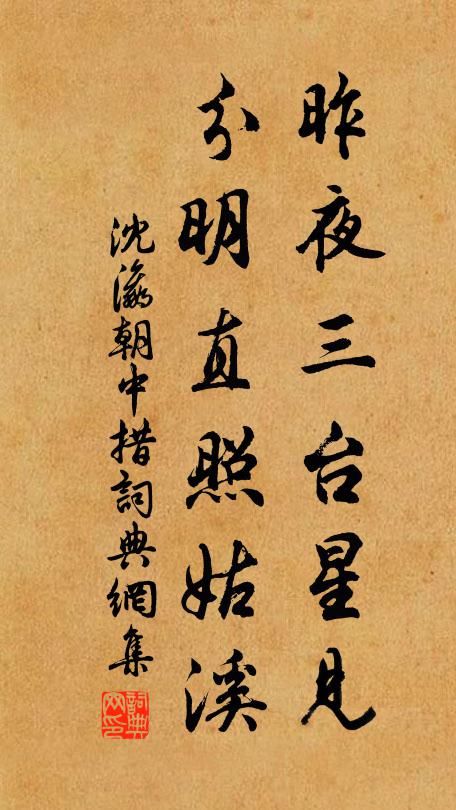 昨夜三台星見
分明直照姑溪
沈瀛朝中措詞典網集
詞典网印